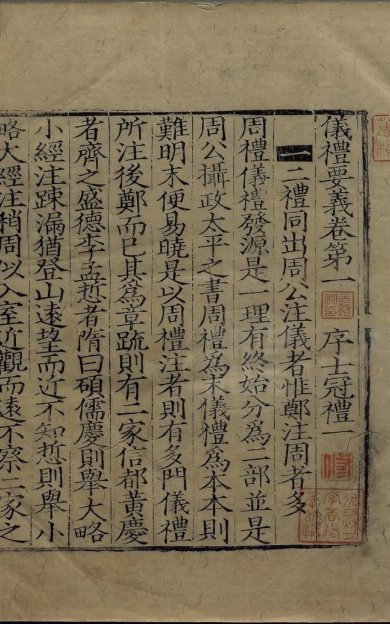 儀禮要義卷第一 序 士冠禮一
一 二禮同出周公注儀者惟鄭注周者多
周禮儀禮發源是一理有終始分為二部並是
周公攝政太平之書周禮為末儀禮為本本則
難明末便易曉是以周禮注者則有多門儀禮
所注後鄭而已其為章疏則有二家信都黃慶
者齊之盛德李孟悊者隋曰碩儒慶則舉大略
小經注踈漏猶登山遠望而近不知悊則舉小
略大經注稍周似入室近觀而遠不察二家之